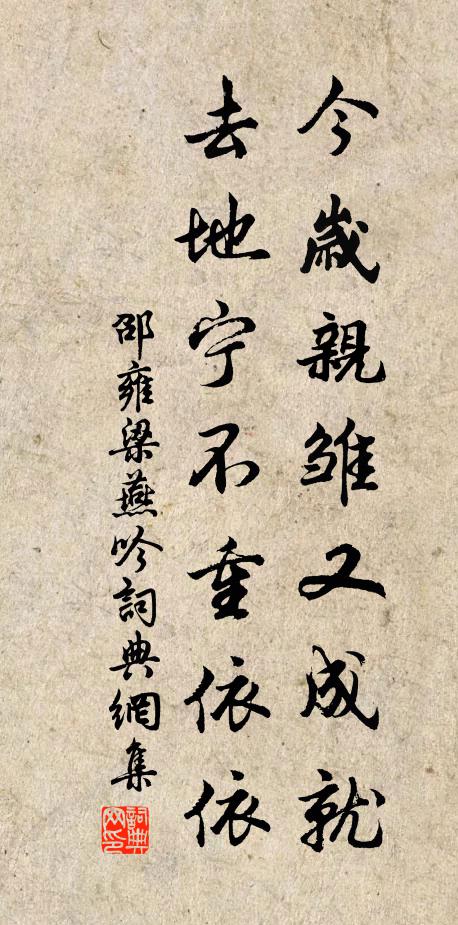 今歲親雛又成就
去地宁不重依依
邵雍梁燕吟詞典網集
詞典网印